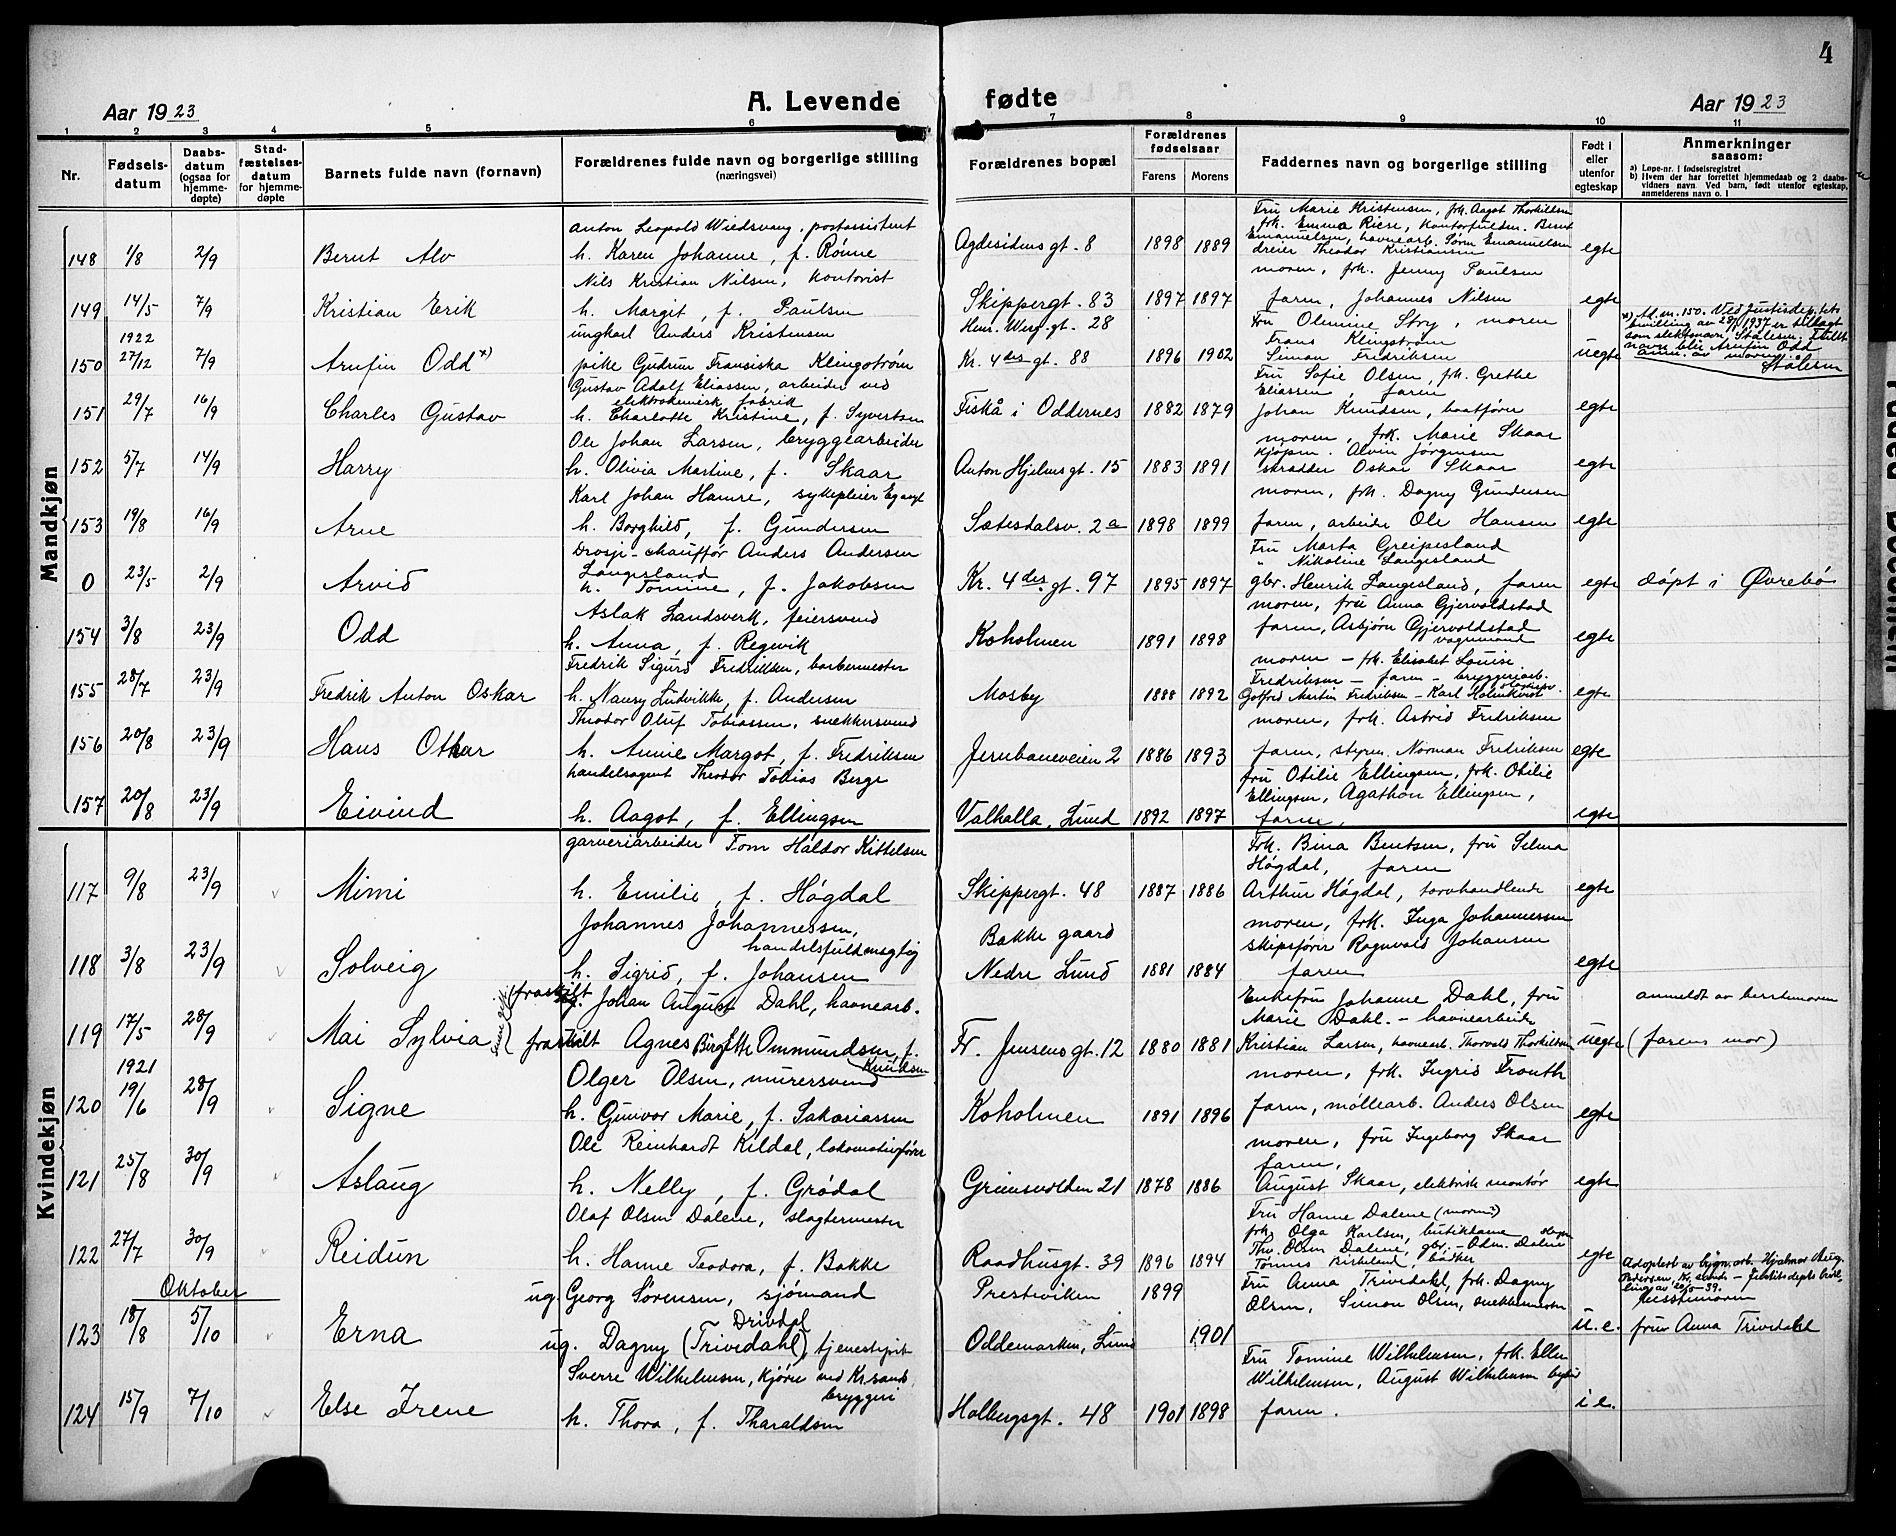 4
Aar 1923
A. Levende fødte
Aar 1923
1 2 3 4 5 6 7 8 9 10 11
Nr.
Fødsels-
datum
Daabs-
datum
(ogsaa for
hjemme-
døpte)
Stad-
fæstelses-
datum
for hjemme-
døpte
Barnets fulde navn (fornavn)
Forældrenes fulde navn og borgerlige stilling
(næringsvei)
Forældrenes bopæl
Forældrenes
fødselsaar
Farens Morens
Faddernes navn og borgerlige stilling
Født i
eller
utenfor
egteskap
Anmerkninger
saasom:
a) Løpe-nr. i fødselsregistret
b) Hvem der har forrettet hjemmedaab og 2 daabs-
vidners navn. Ved barn, født utenfor egteskap,
anmelderens navn o. l.
Mandkjøn
Anton Leopold Wiedswang, postassistent
Fru Marie Kristensen, frk. Aagot Thorkildsen
frk. Emma Riese, kontorfuldm. Bernt
Emanuelsen, havnearb. Sørn Emanuelsen
148 1/8 2/9 Bernt Alv h. Karen Johanne, f. Rønne Agdesidens gt. 8 1898 1889 dreier Theodor Kristiansen egte
Nils Kristian Nilsen, kontorist
moren, frk. Jenny Paulsen
149 14/5 7/9 Kristian Erik h. Margit, f. Paulsen Skippergt. 83 1897 1897 faren, Johannes Nilsen egte
1922
ungkarl Anders Kristensen Henr. Werg. gt. 28
Fru Olemine Stry, moren
Frans Klingstrøm
150 27/12 7/9 Arnfin Odd x) pike Gudrun Fransiska Klingstrøm Kr. 4des gt. 88 1896 1902 Simon Fredriksen uegte
x) Ad. nr. 150. Ved Justisdep.tets
bevilling av 28/1 1937 er tillagt
som slektsnavn Stålesen, fullt
navn blir Arnfin Odd
Stålesen
anm. av moren
Gustav Adolf Eliassen, arbeider ved
elektrokemisk fabrik
Fru Sofie Olsen, frk. Grethe
Eliassen, faren
151 29/7 16/9 Charles Gustav h. Charlotte Kristine, f. Syvertsen Fiskå i Oddernes 1882 1879 Johan Knudsen, baatfører egte
Ole Johan Larsen, bryggearbeider
moren, frk. Marie Skaar
kjøpm. Alvin Jørgensen
152 5/7 14/9 Harry h. Olivia Martine, f. Skaar Anton Hjelms gt. 15 1883 1891 skrædder Oskar Skaar egte
Karl Johan Hamre, sykepleier Eg asyl
moren, frk. Dagny Gundersen
153 19/8 16/9 Arne h. Borghild, f. Gundersen Sætesdalsv. 2a 1898 1899 faren, arbeider Ole Hansen egte
Drosje-chauffør Anders Andersen
Langesland
Fru Marta Greipesland
" Nikoline Langesland
0 23/5 2/9 Arvid h. Tomine, f. Jakobsen Kr. 4des gt. 97 1895 1897 gbr. Henrik Langesland, faren egte døpt i Øvrebø
Aslak Landsverk, feiersvend
moren, fru Anna Gjervoldstad
faren, Asbjørn Gjervoldstad
vognmand
154 3/8 23/9 Odd h. Anna, f. Regevik Koholmen 1891 1898 egte
Fredrik Sigurd Fredriksen, barbermester
moren – frk. Elisabet Louise
Fredriksen – faren – bryggeriarb.
155 28/7 23/9 Fredrik Anton Oskar h. Nancy Ludvikke, f. Andersen Mosby 1888 1892 Gotfred Martin Fredriksen – Karl Holmkvist egte
Theodor Oluf Tobiassen, snekkersvend
moren, frk. Astrid Fredriksen
156 20/8 23/9 Hans Otkar h. Annie Margot, f. Fredriksen Jernbaneveien 2 1886 1893 faren, styrm. Norman Fredriksen egte
handelsagent Theodor Tobias Berge
fru Otilie Ellingsen, frk. Otilie
Ellingsen, Agathon Ellingsen,
157 20/8 23/9 Eivind h. Aagot, f. Ellingsen Valhalla, Lund 1892 1897 faren. egte
Kvindekjøn
garveriarbeider Tom Haldor Kittelsen
Frk. Bina Bentsen, fru Selma
Høgdal, faren
117 9/8 23/9 Mimi h. Emilie, f. Høgdal Skippergt. 48 1887 1886 Arthur Høgdal, torvhandlende egte
Johannes Johannessen,
handelsfuldmægtig
Bakke gaard
moren, frk. Inga Johannessen
skipsfører Ragnvald Johansen
118 3/8 23/9 Solveig h. Sigrid, f. Johansen Nedre Lund 1881 1884 faren egte
fraskilt Johan August Dahl, havnearb.
Enkefru Johanne Dahl, fru
Marie Dahl. – havnearbeider
anmeldt av bestemoren
119 17/5 28/9 Mai Sylvia fraskilt Agnes Birgitte Ommundsen, f. Knudsen Fr. Jensens gt. 12 1880 1881 Kristian Larsen, havnearb. Thorvald Thorkildsen uegte (farens mor)
1921
Olger Olsen, murersvend
moren, frk. Ingrid Fronth
120 19/6 28/9 Signe h. Gunvor Marie, f. Sakariassen Koholmen 1891 1896 faren, møllearb. Anders Olsen egte
Ole Reinhardt Kildal, lokomotivfører
moren, fru Ingeborg Skaar
faren,
121 25/8 30/9 Aslaug h. Nelly, f. Grødal Grimsvolden 21 1878 1886 August Skaar, elektrisk montør egte
Olaf Olsen Dalene, slagtermester
Fru Hanne Dalene (mormor)
frk. Olga Karlsen, butikdame
Thv. Olsen Dalene, gbr. – Odm. Dalene
122 27/7 30/9 Reidun h. Hanne Teodora, f. Bakke Raadhusgt. 39 1896 1894 Tønnes Birkeland, bødker egte
Oktober
ug. Georg Sørensen, sjømand Prestviken 1899
Fru Anna Trivedahl, frk. Dagny
Olsen, Simon Olsen, snekkermester
Adoptert av bygn.arb. Hjalmar Aug.
Pedersen, Kr.sand – Justisdepts bevil-
ling av 20/5-39.
123 18/8 5/10 Erna ug. Dagny (Trivedahl) Drivdal, tjenestepike Oddemarken, Lund 1901 u.e. fru Anna Trivedahl
Sverre Wilhelmsen, kjører ved Kr.sands
bryggeri
Fru Tomine Wilhelmsen, frk. Ellen
Wilhelmsen, August Wilhelmsen
124 15/9 7/10 Else Irene h. Thora, f. Tharaldsen Holbergsgt. 48 1901 1898 faren. i e.